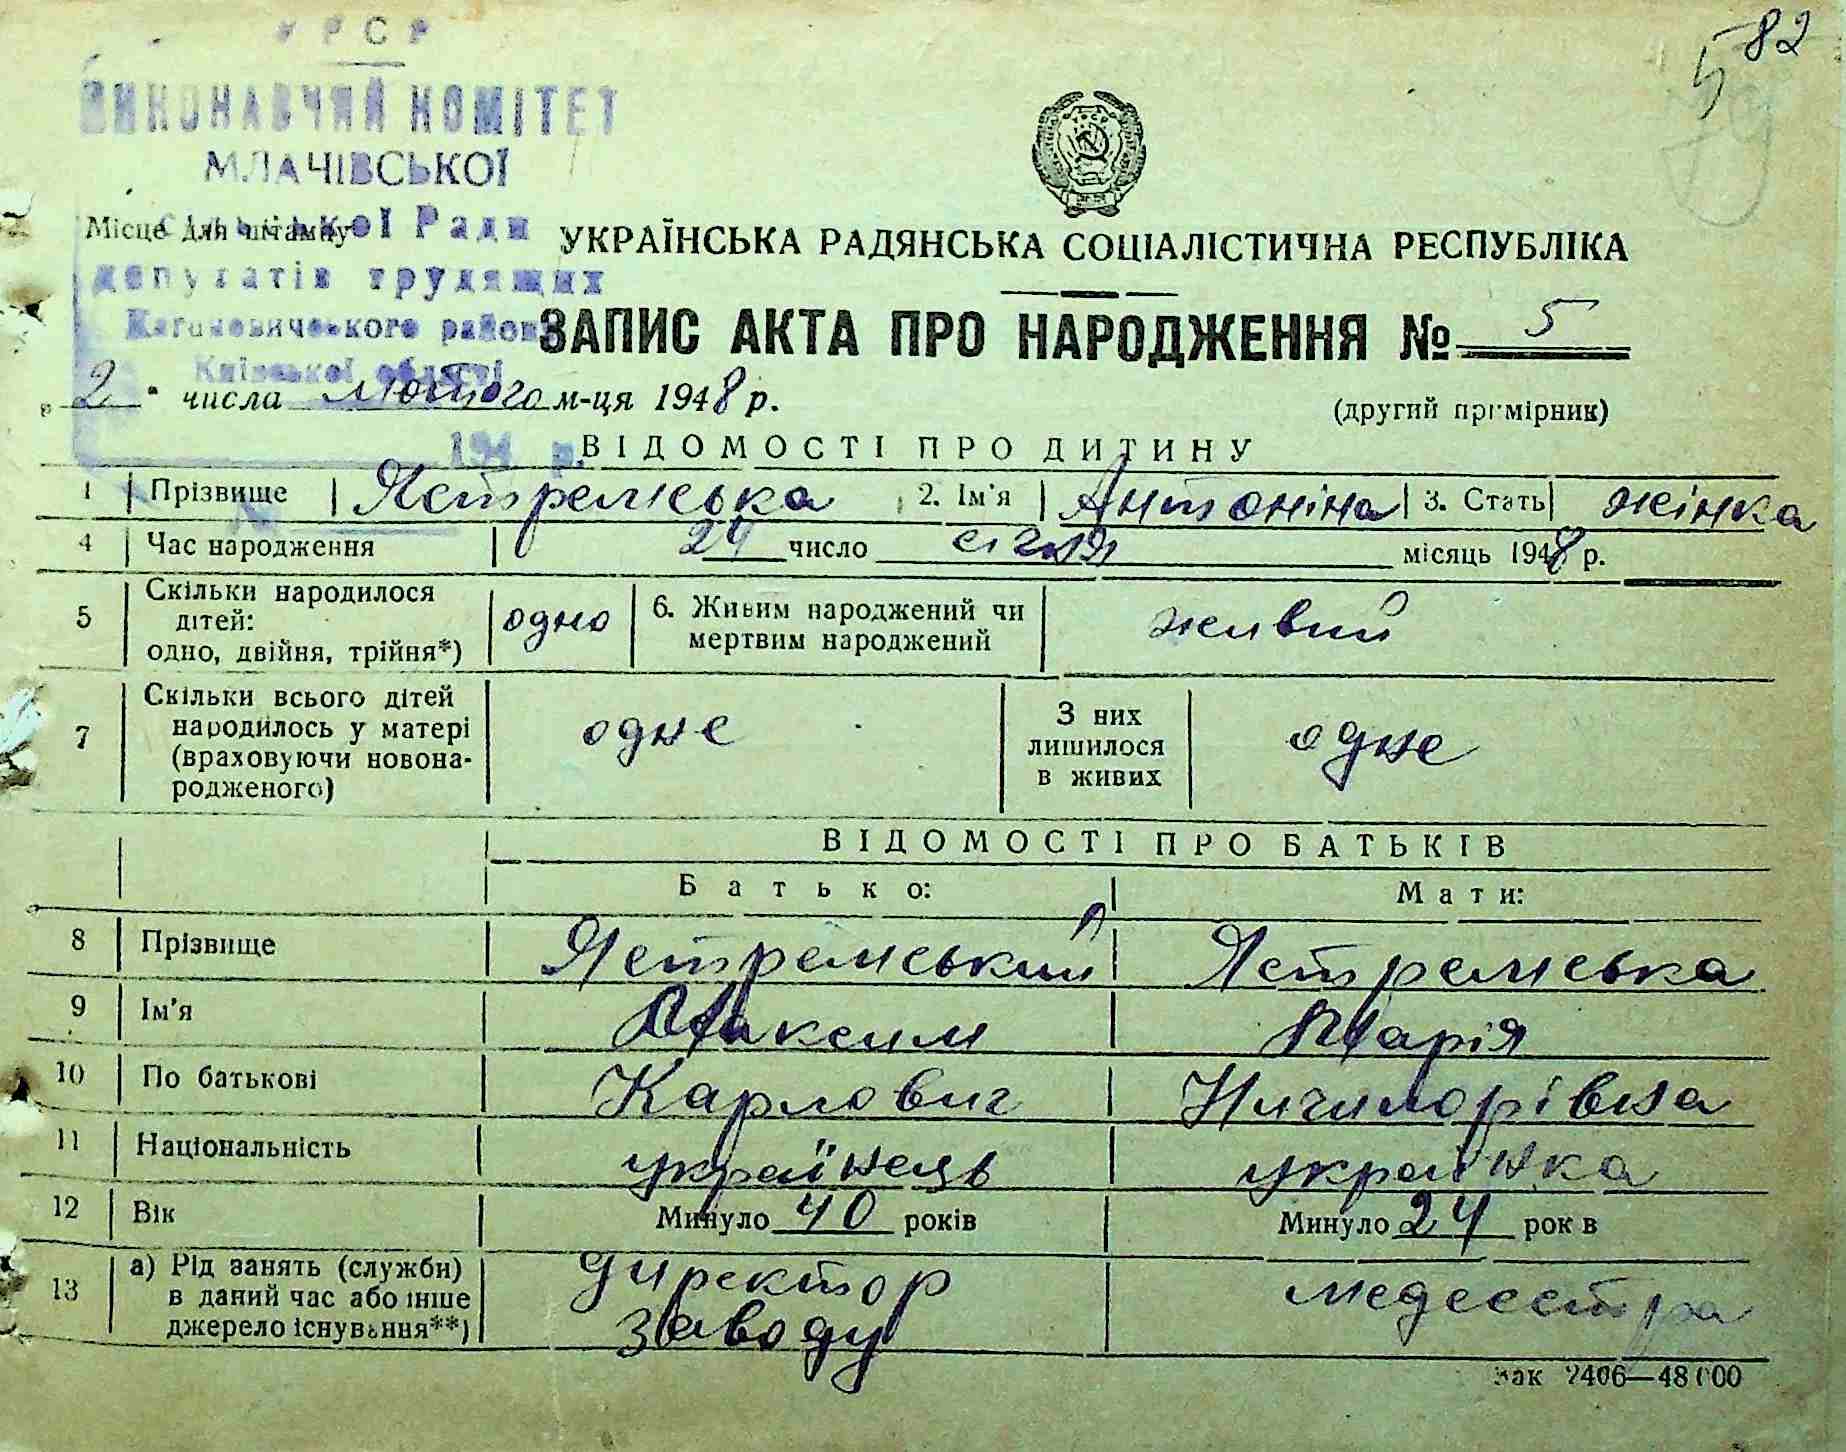 УРСР
82
5
ВИКОНАВЧИЙ КОМІТЕТ
МЛАЧІВСЬКОЇ
Місце для штампу
сільської Ради
УКРАЇНСЬКА РАДЯНСЬКА СОЦІАЛІСТИЧНА РЕСПУБЛІКА
депутатів трудящих
Кагановичевського району
ЗАПИС АКТА ПРО НАРОДЖЕННЯ № 5
Київської області
„2" числа лютого м-ця 1948 р.
(другий примірник)
194 р.
ВІДОМОСТІ ПРО ДИТИНУ
1 Прізвище Ястремська 2. Ім'я Антоніна 3. Стать жінка
4 Час народження 24 число січня місяць 1948 р.
5 Скільки народилося дітей: одно, двійня, трійня*) одно 6. Живим народжений чи мертвим народжений живий
7 Скільки всього дітей народилось у матері (враховуючи новонародженого) одне З них лишилося в живих одне
ВІДОМОСТІ ПРО БАТЬКІВ
Батько: Мати:
8 Прізвище Ястремський Ястремська
9 Ім'я Максим Марія
10 По батькові Карлович Ничипорівна
11 Національність українець українка
12 Вік Минуло 40 років Минуло 24 років
13 а) Рід занять (служби) в даний час або інше джерело існування**) директор заводу медсестра
Зак 2406—48000